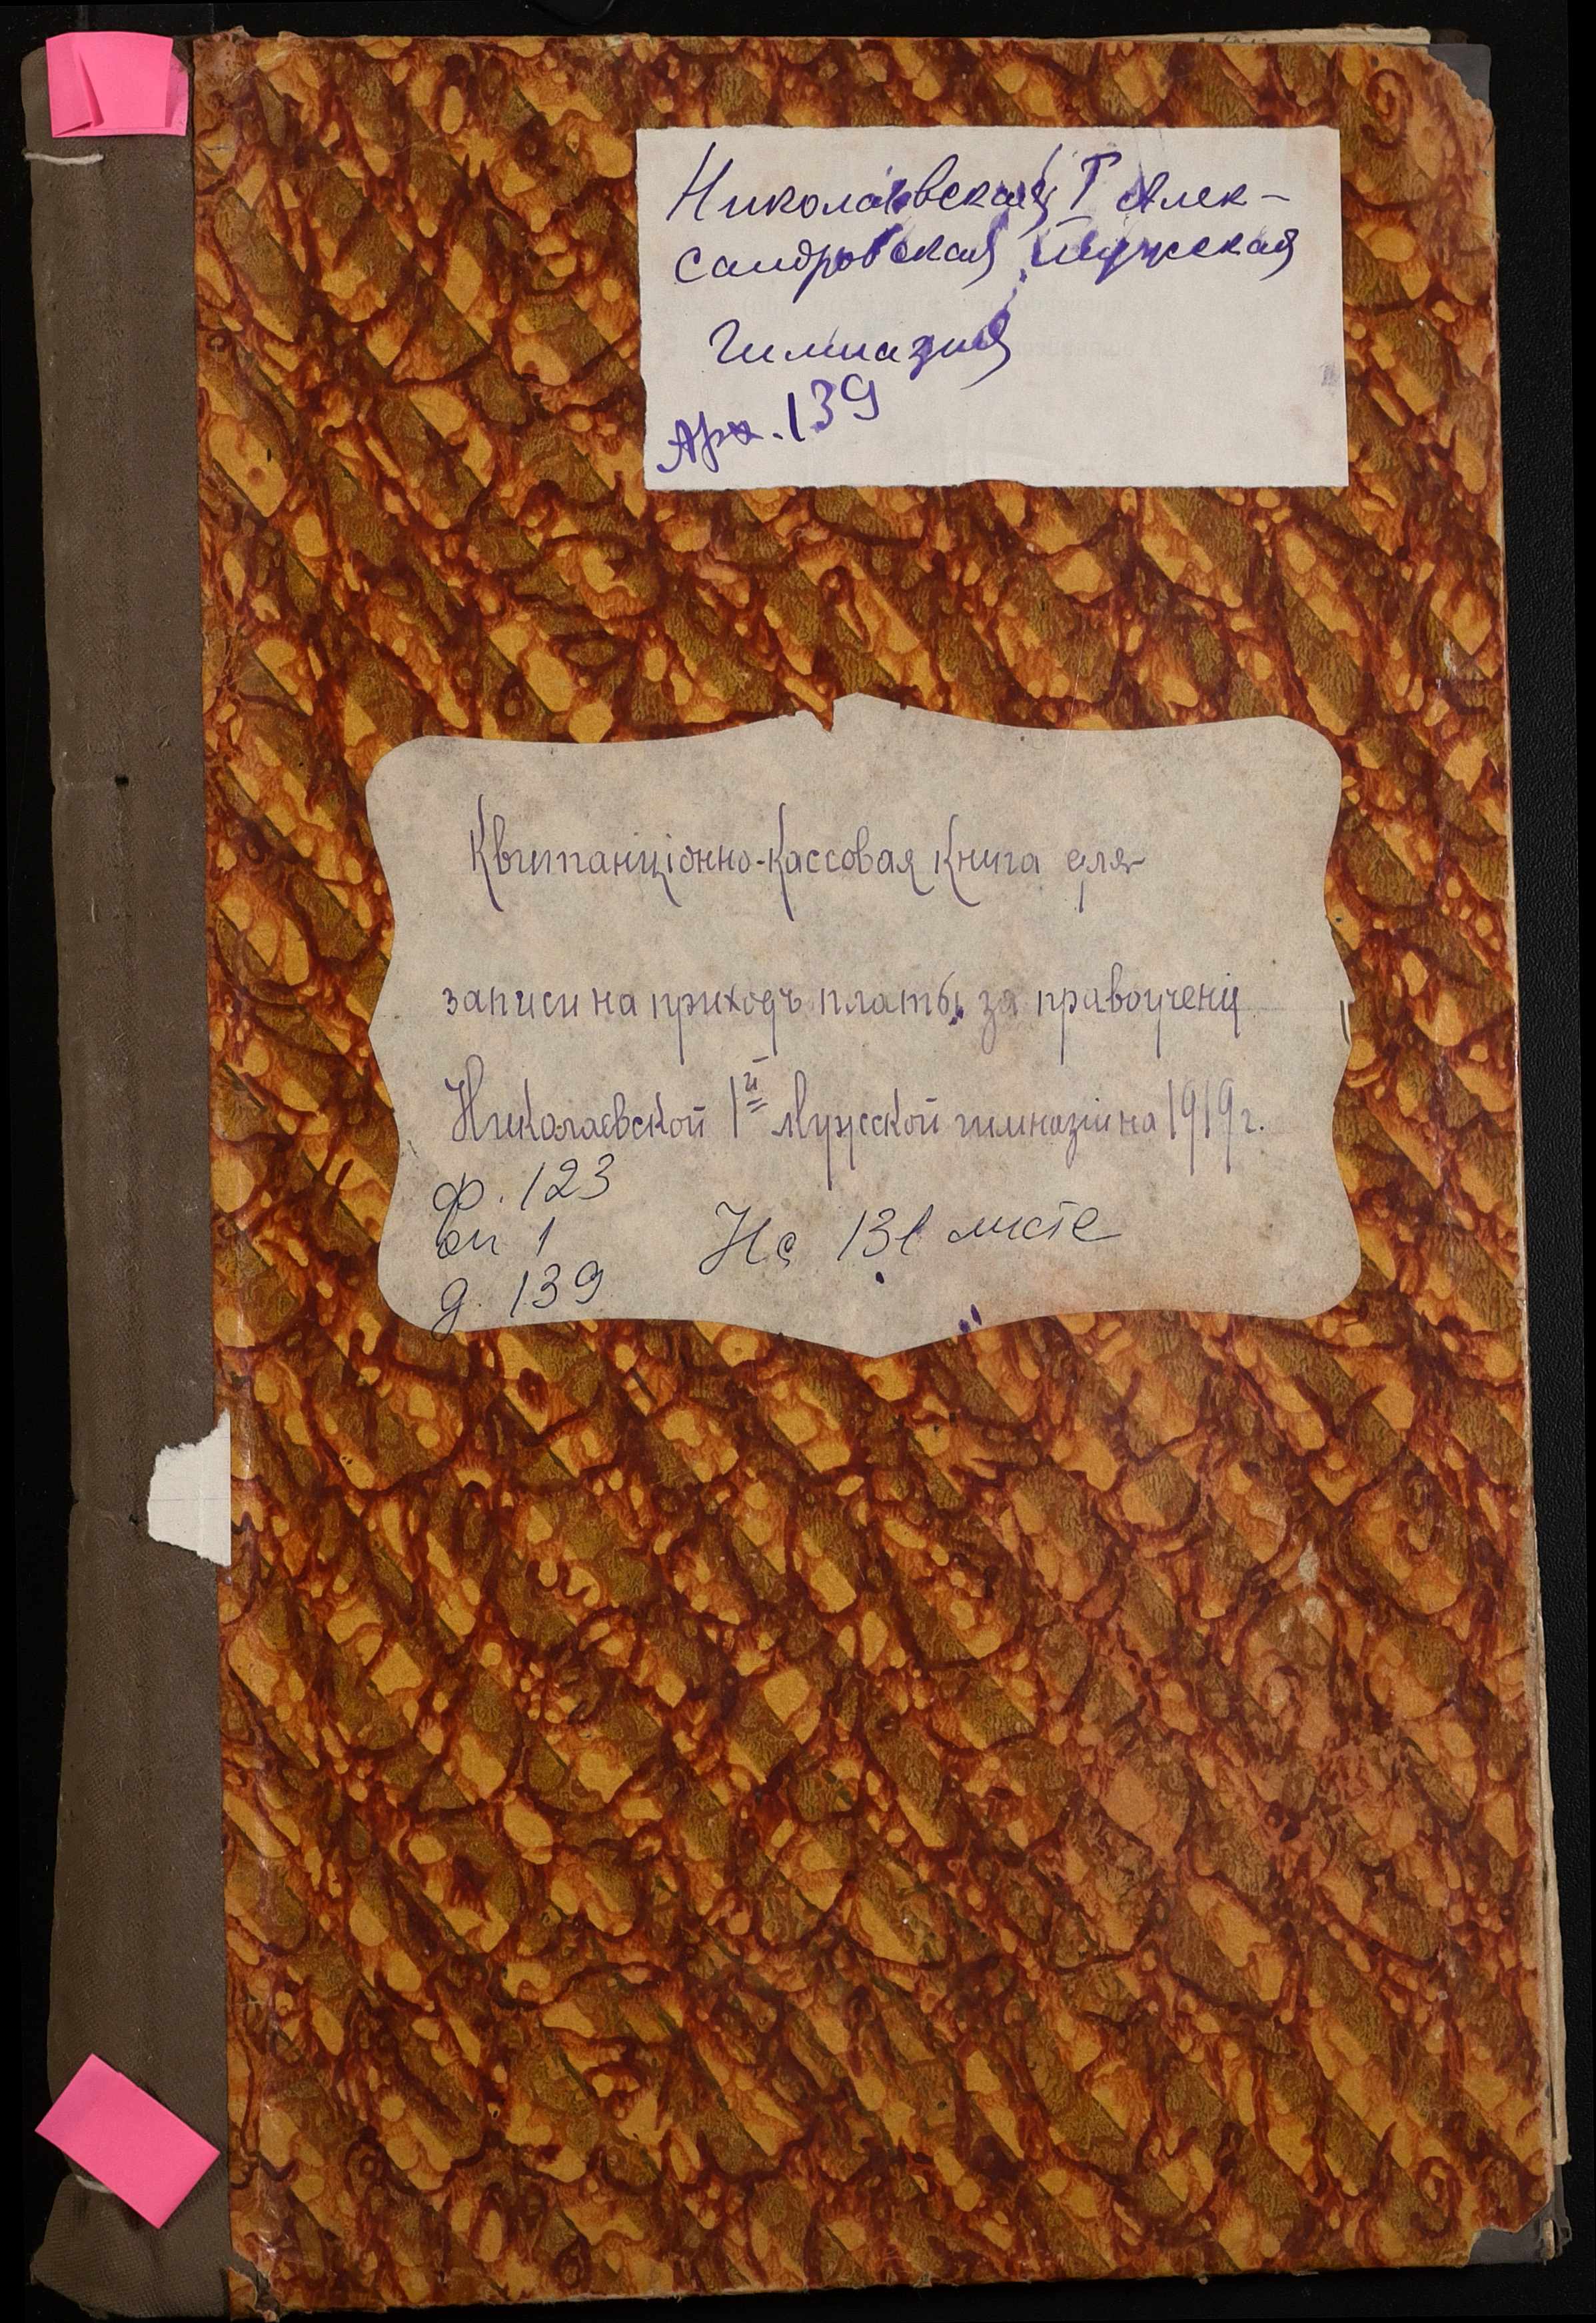 Николаевская I Алек-
сандровская Мужская
Гимназия
Арх. 139
Квитанціонно-Кассовая Книга для
записи на приходъ платы за правоученія
Николаевской 1й Мужской гимназіи на 1919 г.
ф. 123
оп 1
д. 139
На 131 листе